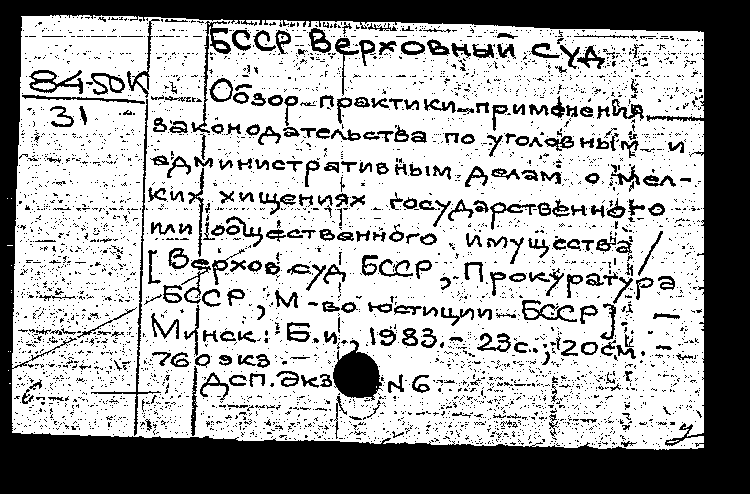 БССР. Верховный суд
84-50К
31
Обзор практики применения
законодательства по уголовным и
административным делам о мел-
ких хищениях государственного
или общественного имущества /
[Верхов. суд БССР, Прокуратура
БССР, М-во юстиции БССР]. —
Минск: Б.и., 1983. - 23с.; 20см. -
760 экз.
ДСП. Экз N 6.